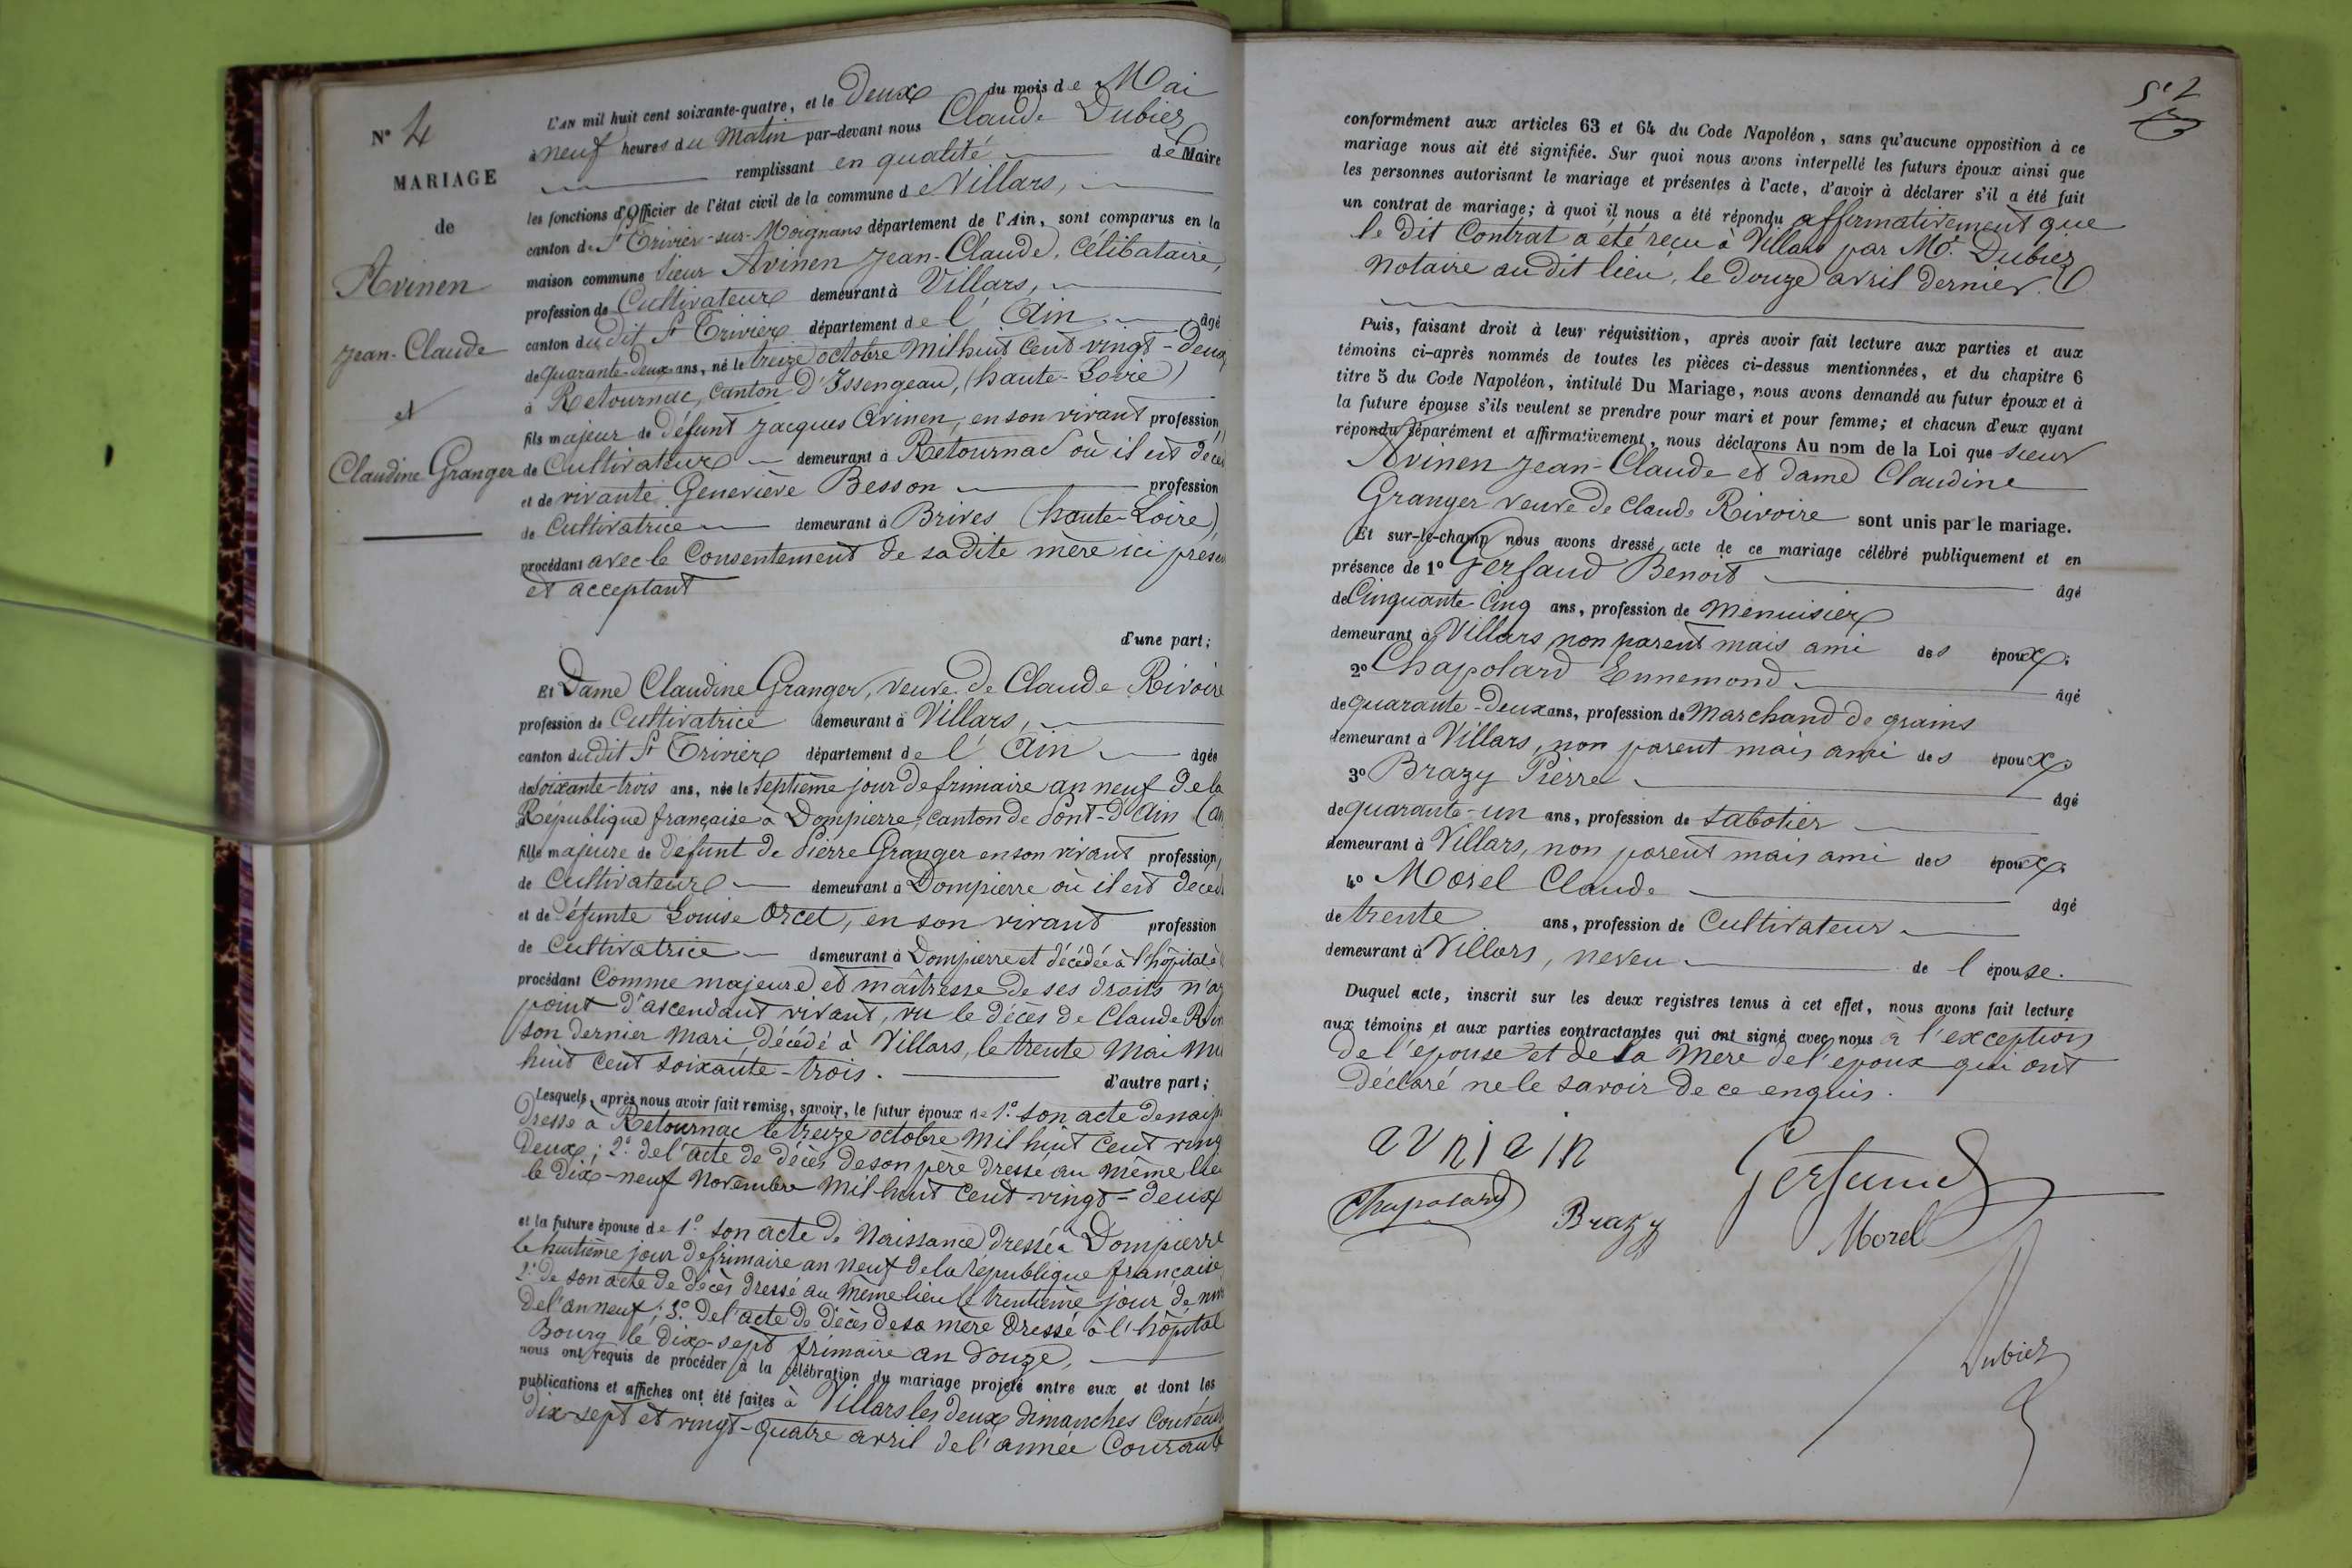 N° 4
MARIAGE
de
Avinen
Jean-Claude
et
Claudine Granger
L'AN mil huit cent soixante-quatre, et le Deux du mois de Mai
à neuf heures du Matin par-devant nous Claude Dubiez
remplissant en qualité de Maire
les fonctions d'Officier de l'état civil de la commune de Villars,
canton de St Trivier-sur-Moignans département de l'Ain, sont comparus en la
maison commune Sieur Avinen Jean-Claude, Célibataire,
profession de Cultivateur demeurant à Villars,
canton dudit St Trivier département de l'Ain âgé
de quarante-deux ans, né le treize octobre Mil huit Cent vingt-deux
à Retournac, Canton d'Issengeau, (haute-Loire)
fils majeur de défunt Jacques Avinen, en son vivant profession
de Cultivateur demeurant à Retournac où il est décé
et de vivante Geneviève Besson profession
de Cultivatrice demeurant à Brives (haute-Loire)
procédant avec le Consentement de sa dite mère ici prése
et acceptant
d'une part;
Et Dame Claudine Granger, veuve de Claude Rivoire
profession de Cultivatrice demeurant à Villars,
canton dudit St Trivier département de l'Ain âgée
de Soixante-trois ans, née le septième jour de frimaire an neuf de la
République française à Dompierre, canton de Pont-d'Ain (Ain
fille majeure de défunt de Pierre Granger en son vivant profession
de Cultivateur demeurant à Dompierre où il est décéd
et de défunte Louise Orcet, en son vivant profession
de Cultivatrice demeurant à Dompierre et décédée à l'hôpital à
procédant Comme majeure et maîtresse de ses droits n'ay
point d'ascendant vivant, vu le décès de Claude Rivoi
son dernier mari, décédé à Villars, le trente Mai Mil
huit Cent soixante-trois.
d'autre part;
Lesquels, après nous avoir fait remise, savoir, le futur époux de 1° son acte de naiss
dressé à Retournac le treize octobre Mil huit Cent ving
Deux; 2° de l'acte de décès de son père dressé au même lieu
le Dix-neuf Novembre Mil huit Cent vingt-deux
et la future épouse de 1° son acte de Naissance dressé à Dompierre
le huitième jour de frimaire an neuf de la république française
2° de son acte de décès dressé au même lieu le trentième jour de
de l'an neuf; 3° de l'acte de décès de sa mère dressé à l'hôpital
Bourg le Dix-sept frimaire an douze,
nous ont requis de procéder à la célébration du mariage projeté entre eux et dont les
publications et affiches ont été faites à Villars les deux dimanches Consécut
dix-sept et vingt-quatre avril de l'année Courante
conformément aux articles 63 et 64 du Code Napoléon, sans qu'aucune opposition à ce
mariage nous ait été signifiée. Sur quoi nous avons interpellé les futurs époux ainsi que
les personnes autorisant le mariage et présentes à l'acte, d'avoir à déclarer s'il a été fait
un contrat de mariage; à quoi il nous a été répondu affirmativement que
le dit Contrat a été reçu à Villars par Me Dubiez
Notaire au dit lieu, le douze avril dernier.
Puis, faisant droit à leur réquisition, après avoir fait lecture aux parties et aux
témoins ci-après nommés de toutes les pièces ci-dessus mentionnées, et du chapitre 6
titre 5 du Code Napoléon, intitulé Du Mariage, nous avons demandé au futur époux et à
la future épouse s'ils veulent se prendre pour mari et pour femme; et chacun d'eux ayant
répondu séparément et affirmativement, nous déclarons Au nom de la Loi que sieur
Avinen Jean-Claude et dame Claudine
Granger veuve de Claude Rivoire sont unis par le mariage.
Et sur-le-champ nous avons dressé acte de ce mariage célébré publiquement et en
présence de 1° Gerfaud Benoit âgé
de Cinquante Cinq ans, profession de Menuisier
demeurant à Villars non parent mais ami des époux;
2° Chapolard Ennemond âgé
de quarante-Deux ans, profession de Marchand de grains
demeurant à Villars, non parent mais ami des époux
3° Brazy Pierre âgé
de quarante-un ans, profession de sabotier
demeurant à Villars, non parent mais ami des époux;
4° Morel Claude âgé
de trente ans, profession de Cultivateur
demeurant à Villars, neveu de l'épouse.
Duquel acte, inscrit sur les deux registres tenus à cet effet, nous avons fait lecture
aux témoins et aux parties contractantes qui ont signé avec nous à l'exception
de l'épouse et de la Mère de l'époux qui ont
Déclaré ne le savoir de ce enquis.
avniain
Gerfaud
Chapolard
Brazy
Morel
Dubiez